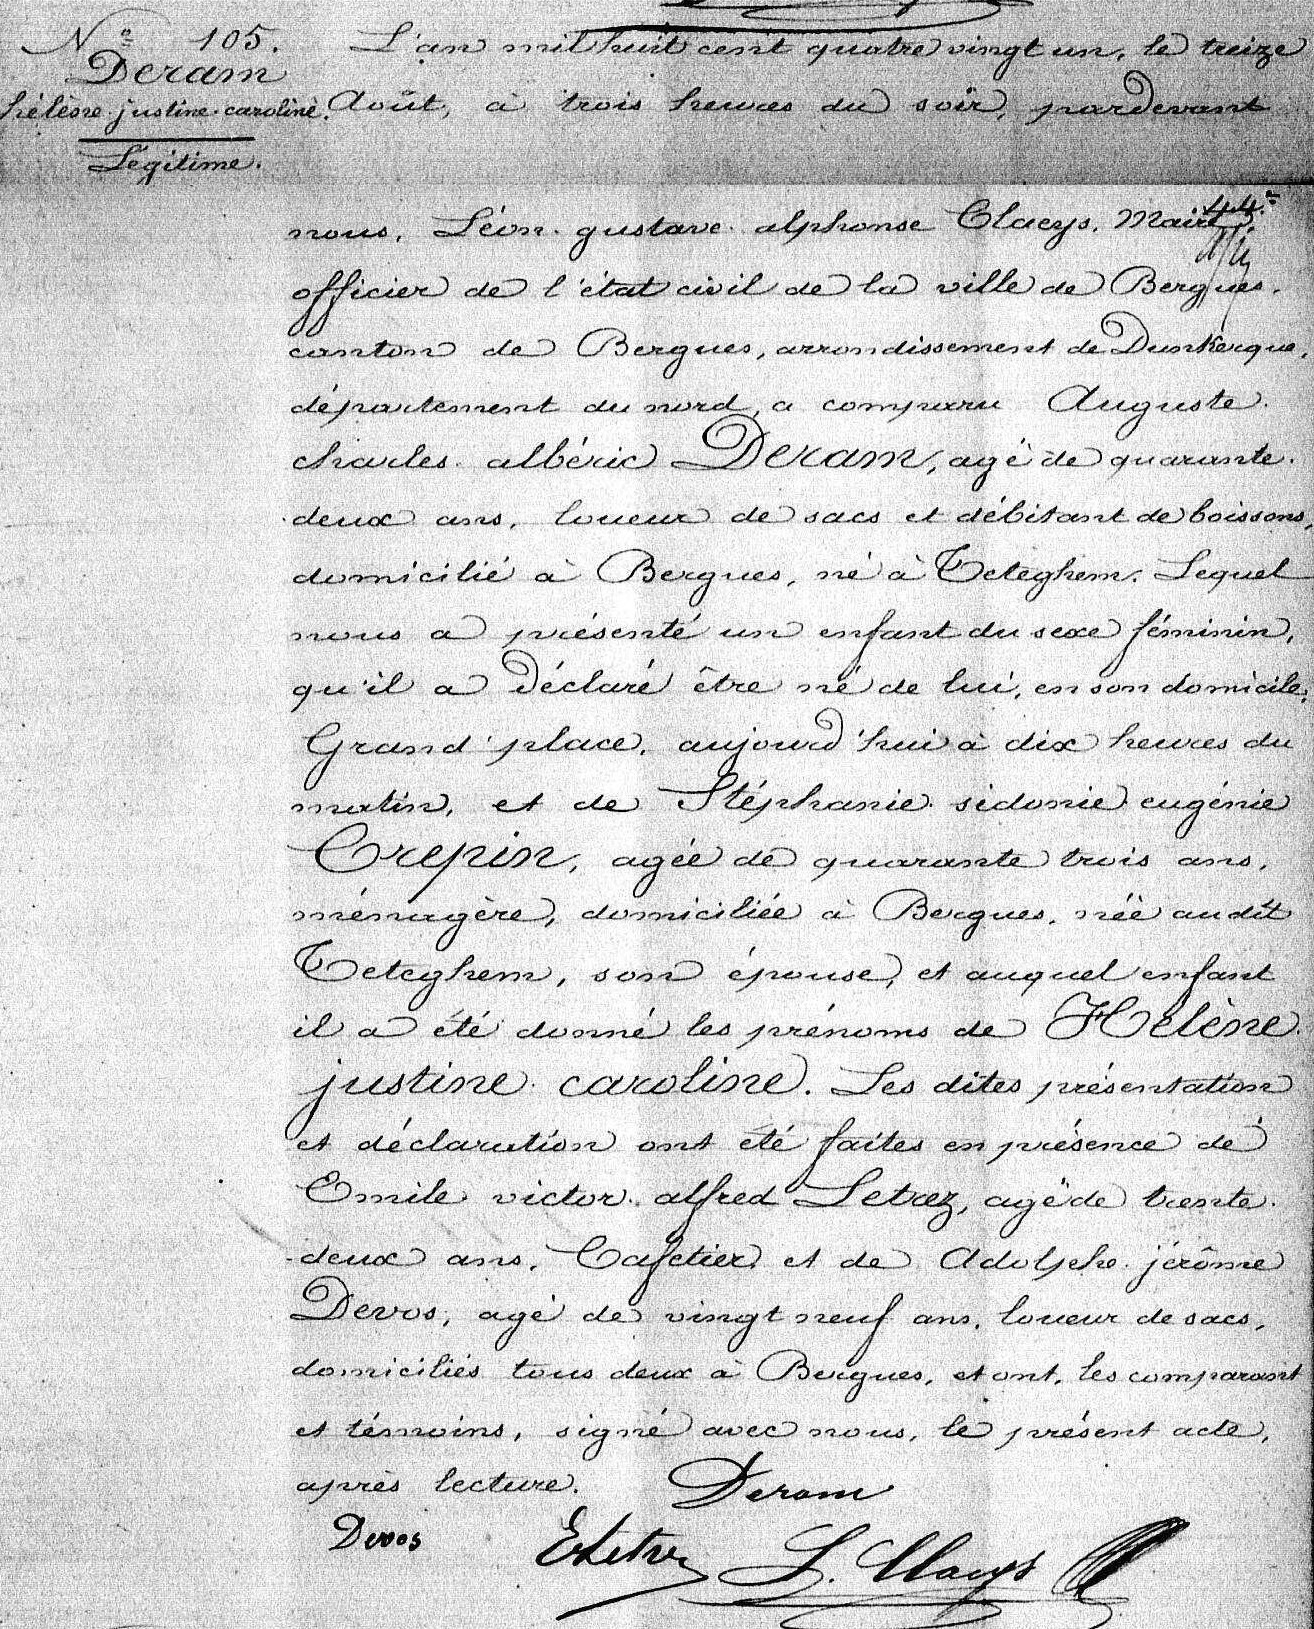 N° 105.
Deram
hélène justine caroline.
Légitime.
L'an mil huit cent quatre vingt un, le treize
Août, à trois heures du soir, pardevant
nous, Léon gustave alphonse Claeys, Maire
officier de l'état civil de la ville de Bergues,
canton de Bergues, arrondissement de Dunkerque,
département du nord, a comparu Auguste
charles albéric Deram, agé de quarante
deux ans, loueur de sacs et débitant de boissons,
domicilié à Bergues, né à Teteghem. Lequel
nous a présenté un enfant du sexe féminin,
qu'il a déclaré être né de lui, en son domicile,
Grand'place, aujourd'hui à dix heures du
matin, et de Stéphanie sidonie eugénie
Crepin, agée de quarante trois ans,
ménagère, domiciliée à Bergues, née audit
Teteghem, son épouse, et auquel enfant
il a été donné les prénoms de Hélène
justine caroline. Les dites présentation
et déclaration ont été faites en présence de
Emile victor alfred Letrez, agé de trente
deux ans, Cafetier et de Adolphe jérôme
Devos, agé de vingt neuf ans, loueur de sacs,
domiciliés tous deux à Bergues, et ont, les comparant
et témoins, signé avec nous, le présent acte,
après lecture.
Deram
Devos
L. Claeys